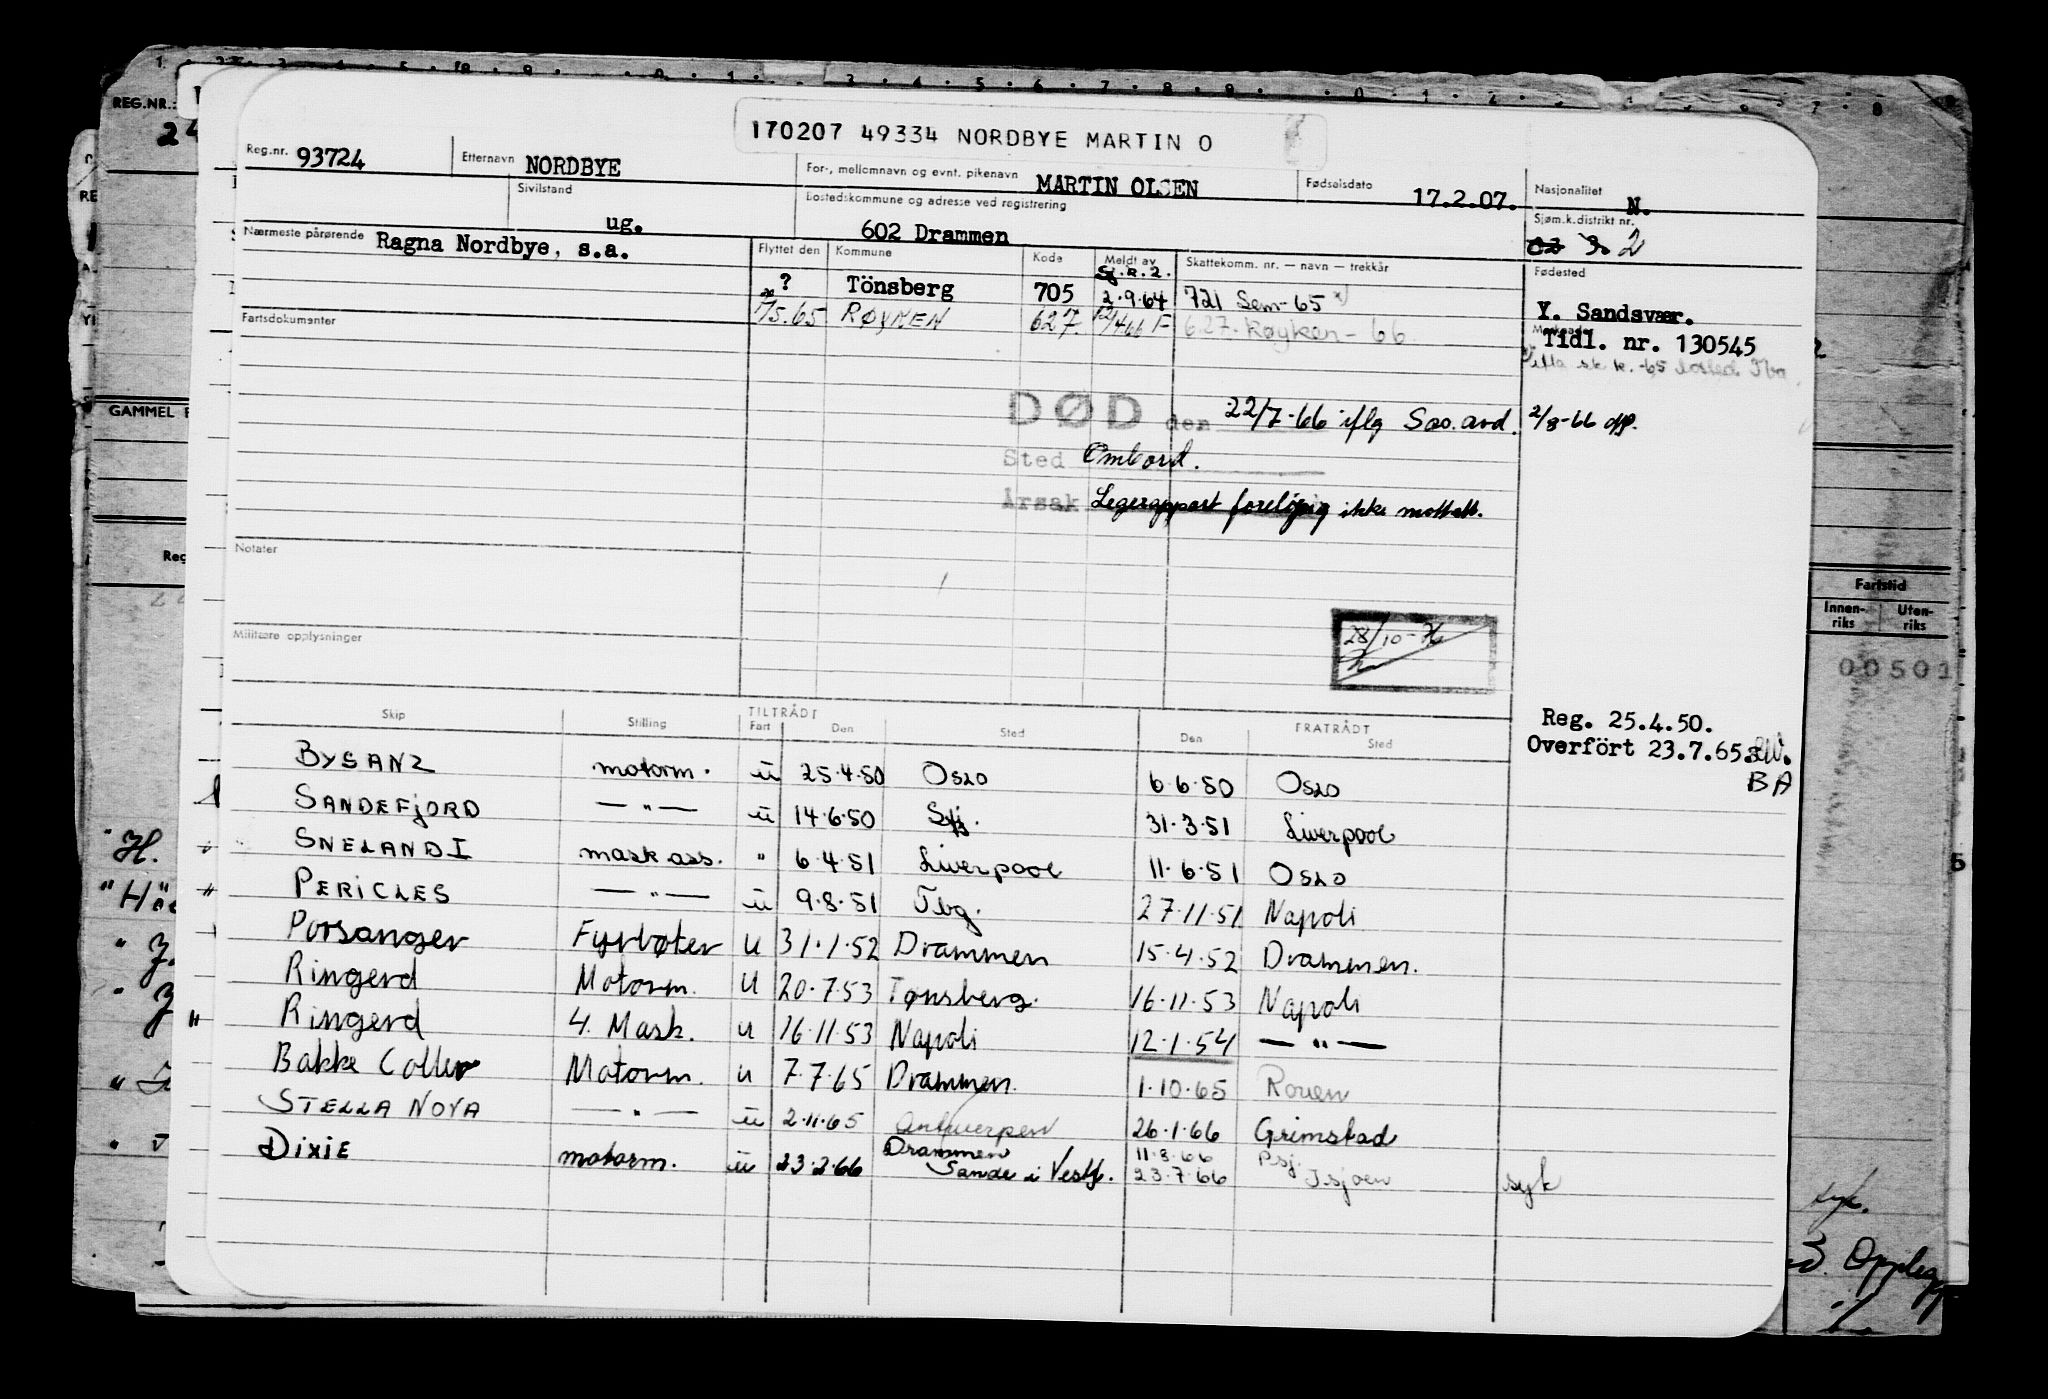 170207 49334 NORDBYE MARTIN O
Reg.nr. 93724 Etternavn NORDBYE For-, mellomnavn og evnt. pikenavn MARTIN OLSEN Fødselsdato 17.2.07. Nasjonalitet N.
Sivilstand ug. Bostedskommune og adresse ved registrering 602 Drammen Sjøm.k.distrikt nr. 2
Nærmeste pårørende Ragna Nordbye, s.a. Flyttet den Kommune Kode Meldt av Skattekomm. nr. — navn — trekkår Fødested
Sj.k.2.
? Tönsberg 705 2.9.64 721 Sem-65 Y. Sandsvær.
Fartsdokumenter 5.65 RØYKEN 627 627. Røyken - 66 Merknader
Tidl. nr. 130545
DØD den 22/7-66 iflg Sos. avd. 2/8-66
Sted Ombord.
Årsak Legerapport foreløpig ikke mottatt.
Notater
Militære opplysninger
28/10-
Reg. 25.4.50.
Overfört 23.7.65.
BA
TILTRÅDT FRATRÅDT
Skip Stilling Fart Den Sted Den Sted
BYSANZ motorm. ü 25.4.50 OSLO 6.6.50 OSLO
SANDEFJORD — " — ü 14.6.50 Sfj. 31.3.51 Liverpool
SNELAND I mask ass. " 6.4.51 Liverpool 11.6.51 OSLO
PERICLES — " — ü 9.8.51 Tbg. 27.11.51 Napoli
Porsanger Fyrbøter U 31.1.52 Drammen 15.4.52 Drammen.
Ringerd Motorm. U 20.7.53 Tønsberg. 16.11.53 Napoli
Ringerd 4. Mask. u 16.11.53 Napoli 12.1.54 — " —
Bakke Cooler Motorm. u 7.7.65 Drammen. 1.10.65 Rouen
STELLA NOVA — " — ü 2.11.65 Antwerpen 26.1.66 Grimstad
DIXIE motorm. ü 23.2.66 Drammen 11.3.66 Psj.
Sande i Vestf. 23.7.66 syk
REG.NR.:
GAMMEL
Reg
Fartstid
Innen-riks Uten-riks
00501
H.